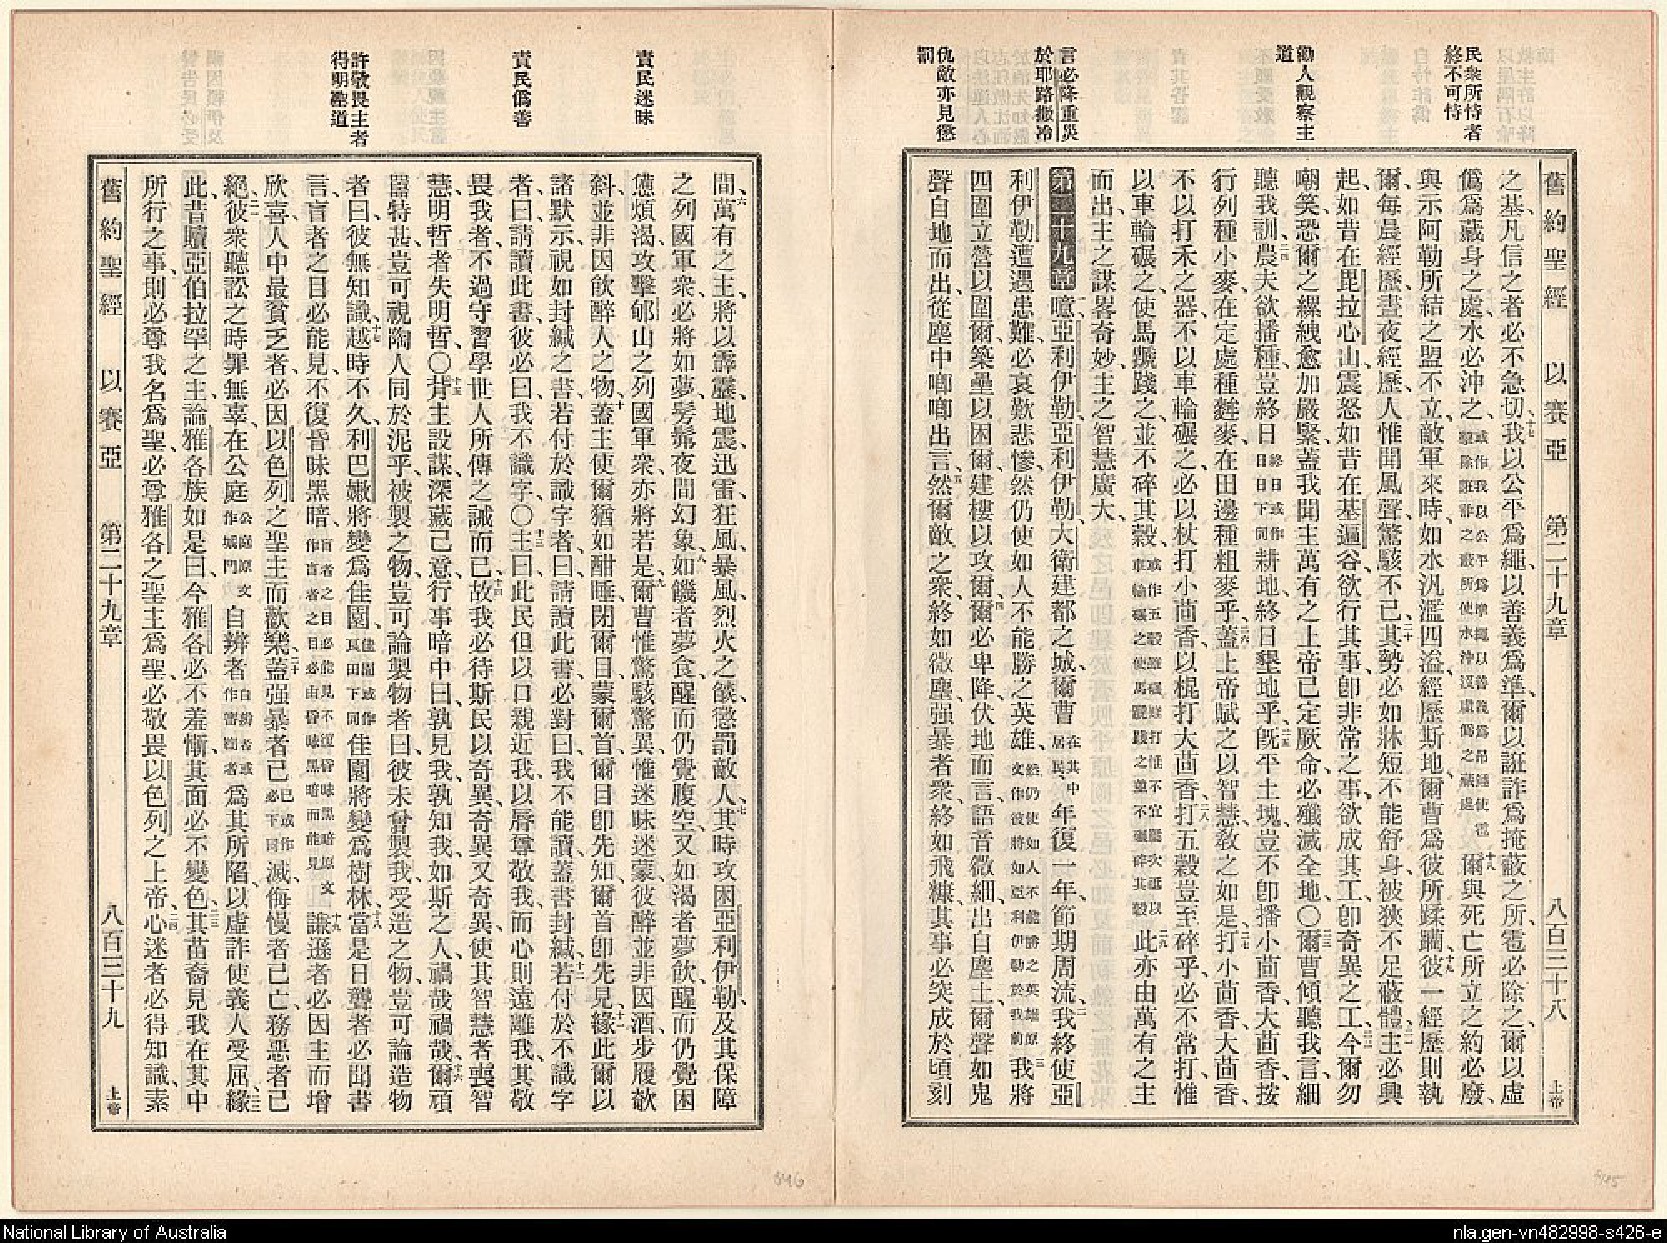 民衆所恃者
終不可恃
勸人觀察主
道
言必降重災
於耶路撒冷
仇敵亦見懲
罰
舊約聖經 以賽亞 第二十九章 八百三十八 上帝
之基凡信之者必不急切十七我以公平爲繩以善義爲準爾以誑詐爲掩蔽之所雹必除之爾以虛
僞爲藏身之處水必沖之 十八爾與死亡所立之約必廢
與示阿勒所結之盟不立敵軍來時如水汎濫四溢經歷斯地爾曹爲彼所蹂躪十九彼一經歷則執
爾每晨經歷晝夜經歷人惟聞風聲驚駭不已二十其勢必如牀短不能舒身被狹不足蔽體二一主必興
起如昔在毘拉心山震怒如昔在基遍谷欲行其事卽非常之事欲成其工卽奇異之工二二今爾勿
嘲笑恐爾之縲絏愈加嚴緊蓋我聞主萬有之上帝已定厥命必殲滅全地〇二三爾曹傾聽我言細
聽我訓二四農夫欲播種豈終日終日或作日日下同耕地終日墾地乎二五旣平土塊豈不卽播小茴香大茴香按
行列種小麥在定處種麰麥在田邊種粗麥乎二六蓋上帝賦之以智慧敎之如是二七打小茴香大茴香
不以打禾之器不以車輪碾之必以杖打小茴香以棍打大茴香二八打五穀豈至碎乎必不常打惟
以車輪碾之使馬蹴踐之並不碎其穀 二九此亦由萬有之主
而出主之謀畧奇妙主之智慧廣大
第二十九章 一噫亞利伊勒亞利伊勒大衛建都之城爾曹在其中居民年復一年節期周流二我終使亞
利伊勒遭遇患難必哀歎悲慘然仍使如人不能勝之英雄 三我將
四圍立營以圍爾築壘以困爾建樓以攻爾四爾必卑降伏地而言語音微細出自塵土爾聲如鬼
聲自地而出從塵中喞喞出言五然爾敵之衆終如微塵强暴者衆終如飛糠其事必突成於頃刻
責民迷昧
責民僞善
許敬畏主者
得明聖道
間六萬有之主將以霹靂地震迅雷狂風暴風烈火之燄懲罰敵人七其時攻困亞利伊勒及其保障
之列國軍衆必將如夢髣髴夜間幻象八如饑者夢食醒而仍覺腹空又如渴者夢飲醒而仍覺困
憊煩渴攻擊郇山之列國軍衆亦將若是九爾曹惟驚駭驚異惟迷昧迷蒙彼醉並非因酒步履欹
斜並非因飲醉人之物十蓋主使爾猶如酣睡閉爾目蒙爾首爾目卽先知爾首卽先見十一緣此爾以
諸默示視如封緘之書若付於識字者曰請讀此書必對曰我不能讀蓋書封緘十二若付於不識字
者曰請讀此書彼必曰我不識字〇十三主曰此民但以口親近我以唇尊敬我而心則遠離我其敬
畏我者不過守習學世人所傳之誡而已十四故我必待斯民以奇異奇異又奇異使其智慧者喪智
慧明哲者失明哲〇十五背主設謀深藏己意行事暗中曰孰見我孰知我如斯之人禍哉禍哉十六爾頑
嚚特甚豈可視陶人同於泥乎被製之物豈可論製物者曰彼未曾製我受造之物豈可論造物
者曰彼無知識十七越時不久利巴嫩將變爲佳園佳園或作良田下同佳園將變爲樹林十八當是日聾者必聞書
言盲者之目必能見不復昏昧黑暗 十九謙遜者必因主而增
欣喜人中最貧乏者必因以色列之聖主而歡樂二十蓋强暴者已已或作必下同滅侮慢者已亡務惡者已
絕二一彼衆聽訟之時罪無辜在公庭公庭原文作城門自辨者 爲其所陷以虛詐使義人受屈二二緣
此昔贖亞伯拉罕之主論雅各族如是曰今雅各必不羞慚其面必不變色二三其苗裔見我在其中
所行之事則必尊我名爲聖必尊雅各之聖主爲聖必敬畏以色列之上帝二四心迷者必得知識素
舊約聖經 以賽亞 第二十九章 八百三十九 上帝
846
845
National Library of Australia
nla.gen-vn482998-s426-e